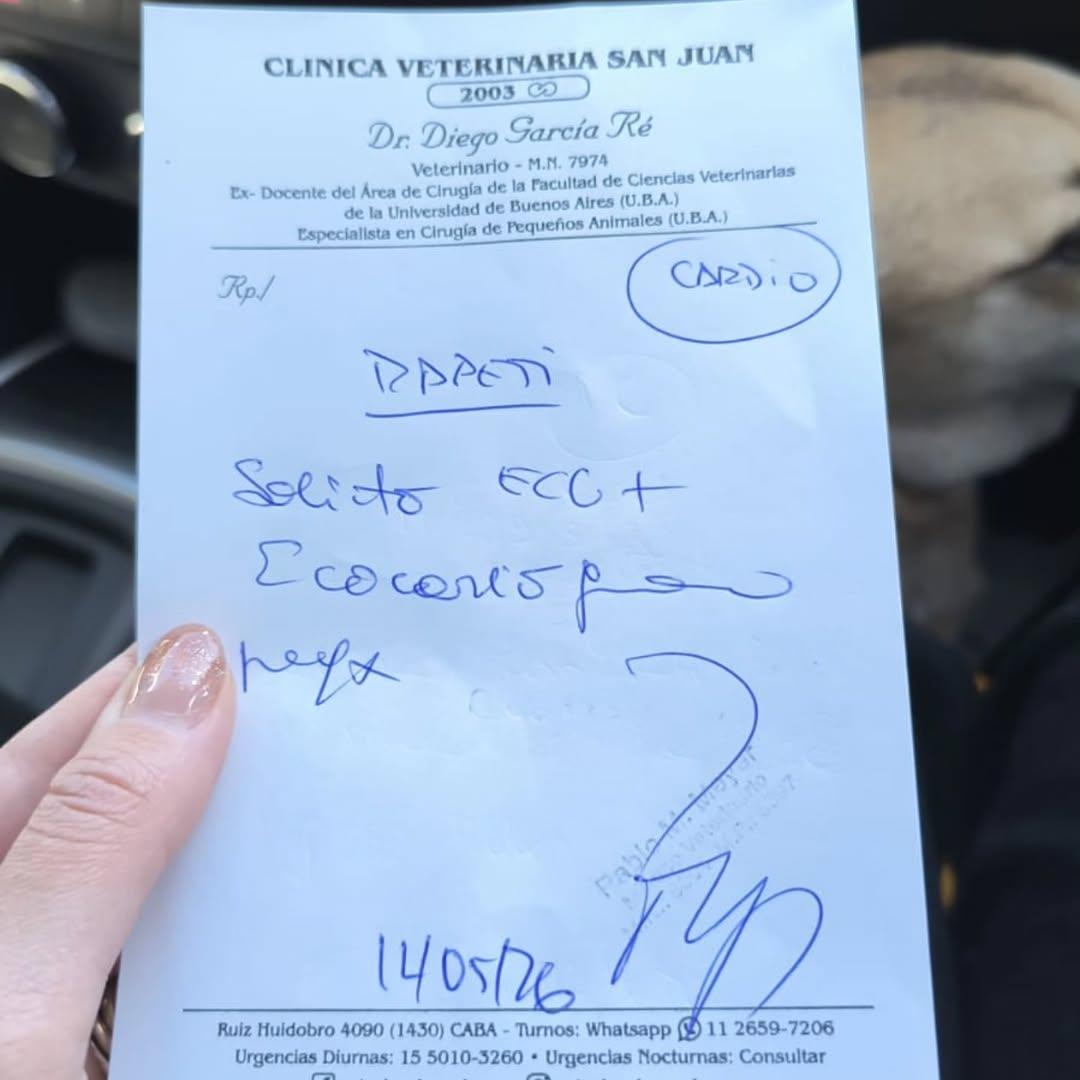 CLINICA VETERINARIA SAN JUAN
2003
Dr. Diego García Ré
Veterinario - M.N. 7974
Ex- Docente del Área de Cirugía de la Facultad de Ciencias Veterinarias
de la Universidad de Buenos Aires (U.B.A.)
Especialista en Cirugía de Pequeños Animales (U.B.A.)
CARDIO
Rp./
Solicito ECG +
Ecocardiograma
Pablo M.
14/05/26
Ruiz Huidobro 4090 (1430) CABA - Turnos: Whatsapp 11 2659-7206
Urgencias Diurnas: 15 5010-3260 • Urgencias Nocturnas: Consultar